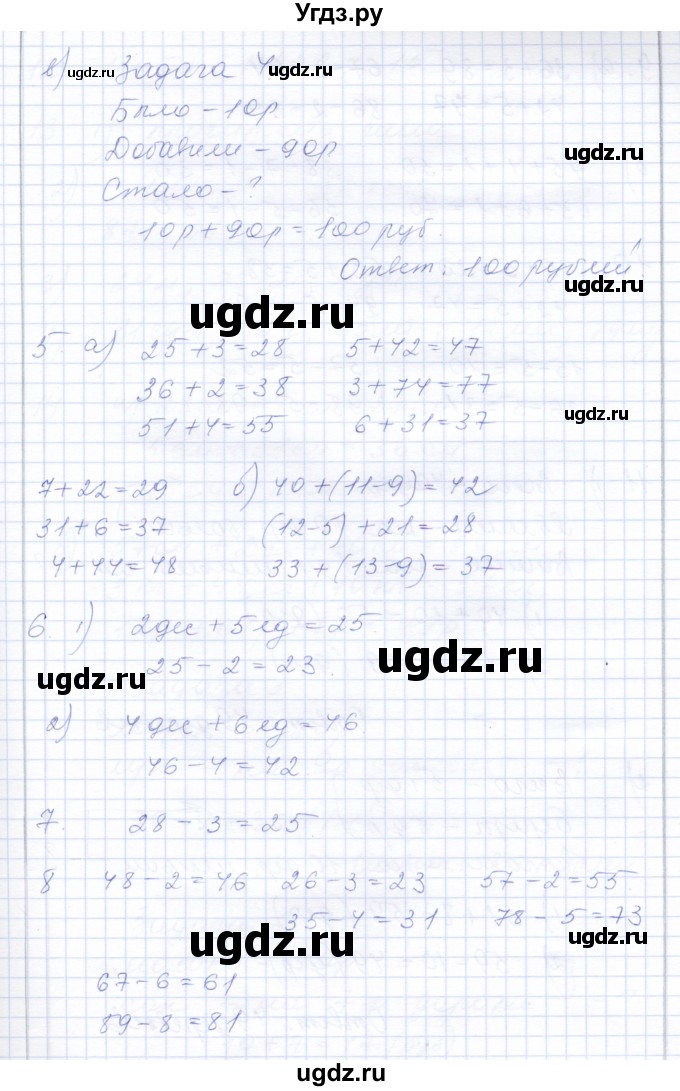 Угдз.ру
в) Задача 4
ugdz.ru ugdz.ru
Было - 10р
Добавили - 90р
ugdz.ru
Стало - ?
10р + 90р = 100 руб.
Ответ: 100 рублей.
ugdz.ru
ugdz.ru
5 а) 25 + 3 = 28 5 + 42 = 47
36 + 2 = 38 3 + 74 = 77
51 + 4 = 55 6 + 31 = 37
ugdz.ru
7 + 22 = 29 б) 40 + (11 - 9) = 42
31 + 6 = 37 (12 - 5) + 21 = 28
4 + 44 = 48 33 + (13 - 9) = 37
6. 1) 2 дес + 5 ед = 25
25 - 2 = 23
ugdz.ru ugdz.ru
2) 4 дес + 6 ед = 46
46 - 4 = 42
7. 28 - 3 = 25
8 48 - 2 = 46 26 - 3 = 23 57 - 2 = 55
35 - 4 = 31 78 - 5 = 73
ugdz.ru ugdz.ru
67 - 6 = 61
89 - 8 = 81
ugdz.ru